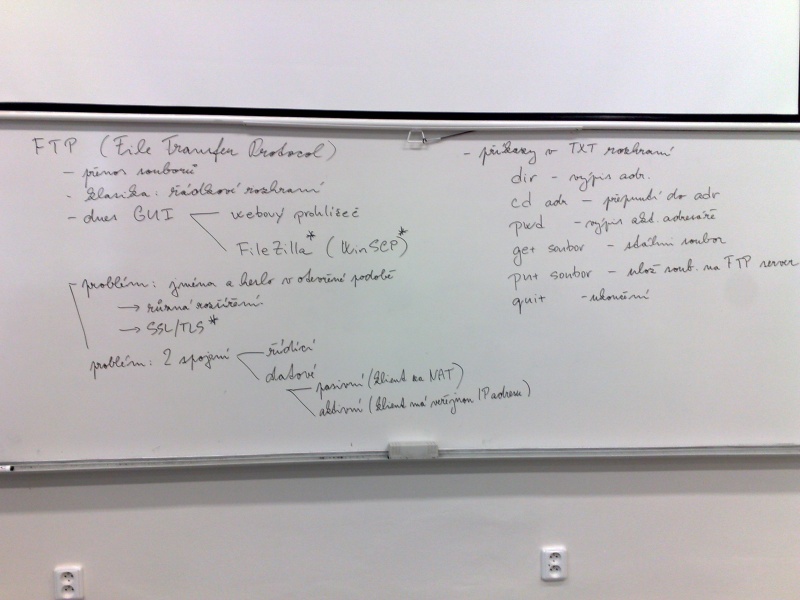 FTP (File Transfer Protocol)
- přenos souborů
- klasika: řádkové rozhraní
- dnes GUI
webový prohlížeč
FileZilla* (WinSCP)*
- problém: jména a heslo v otevřené podobě
→ různá rozšíření
→ SSL/TLS*
problém: 2 spojení
řídící
datové
pasivní (klient za NAT)
aktivní (klient má veřejnou IP adresu)
- příkazy v TXT rozhraní
dir - výpis adr.
cd adr - přepnutí do adr
pwd - výpis akt. adresáře
get soubor - stáhni soubor
put soubor - ulož soub. na FTP server
quit - ukončení